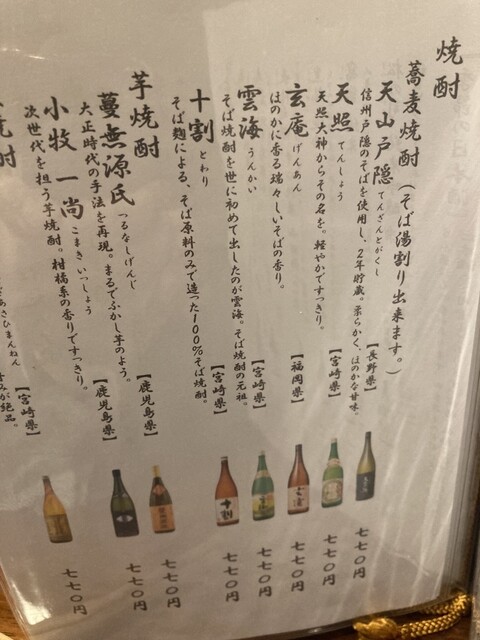 焼酎
蕎麦焼酎（そば湯割り出来ます。）
天山戸隠 てんざんとがくし
信州戸隠のそばを使用し、2年貯蔵。柔らかく、ほのかな甘味。
【長野県】
七七〇円
天照 てんしょう
天照大神からその名を。軽やかですっきり。
【宮崎県】
七七〇円
玄庵 げんあん
ほのかに香る瑞々しいそばの香り。
【福岡県】
七七〇円
雲海 うんかい
そば焼酎を世に初めて出したのが雲海。そば焼酎の元祖。
【宮崎県】
七七〇円
十割 とわり
そば麹による、そば原料のみで造った100%そば焼酎。
【宮崎県】
十割
七七〇円
芋焼酎
蔓無源氏 つるなしげんじ
大正時代の手法を再現。まるでふかし芋のよう。
【鹿児島県】
七七〇円
小牧 一尚 こまき いっしょう
次世代を担う芋焼酎。柑橘系の香りですっきり。
【鹿児島県】
七七〇円
焼酎
あさひまんねん
甘みが絶品。
【宮崎県】
七七〇円